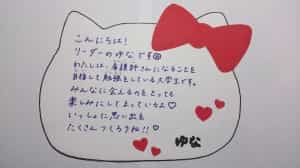 こんにちは!
リーダーのゆなです😊
わたしは、看護師さんになることを
目指して勉強をしている大学生です。
みんなに会えるのをとっても
楽しみにしてまっているよ♡
いっしょに思い出を
たくさんつくろうね!!
ゆな